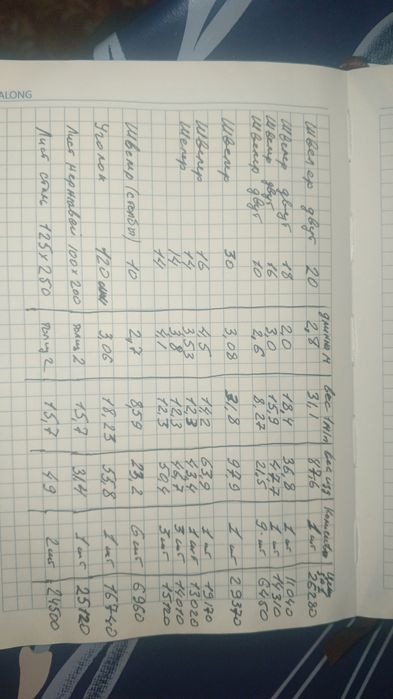 ALONG
длинна м вес 1 п/м вес изд Количество Цена
Швелер двут 20 2,8 31,1 87,6 1 шт 26280
Швелер двут 18 2,0 18,4 36,8 1 шт 11040
Швелер двут 16 3,0 15,9 47,7 1 шт 14310
Швелер двут 10 2,6 8,27 21,5 9 шт 6450
Швелер 30 3,08 31,8 97,9 1 шт 29370
Швелер 16 4,5 14,2 63,9 1 шт 19170
Швелер 14 3,53 12,3 43,4 1 шт 13020
14 3,8 12,3 46,7 3 шт 14010
14 4,1 12,3 50,4 3 шт 15120
Швелер (столбы) 10 2,7 8,59 23,2 6 шт 6960
Уголок 120 3,06 18,23 55,8 1 шт 16740
Лист 100x200 толщ 2 15,7 31,4 1 шт 25120
Лист 125x250 толщ 2 15,7 49 2 шт 24500